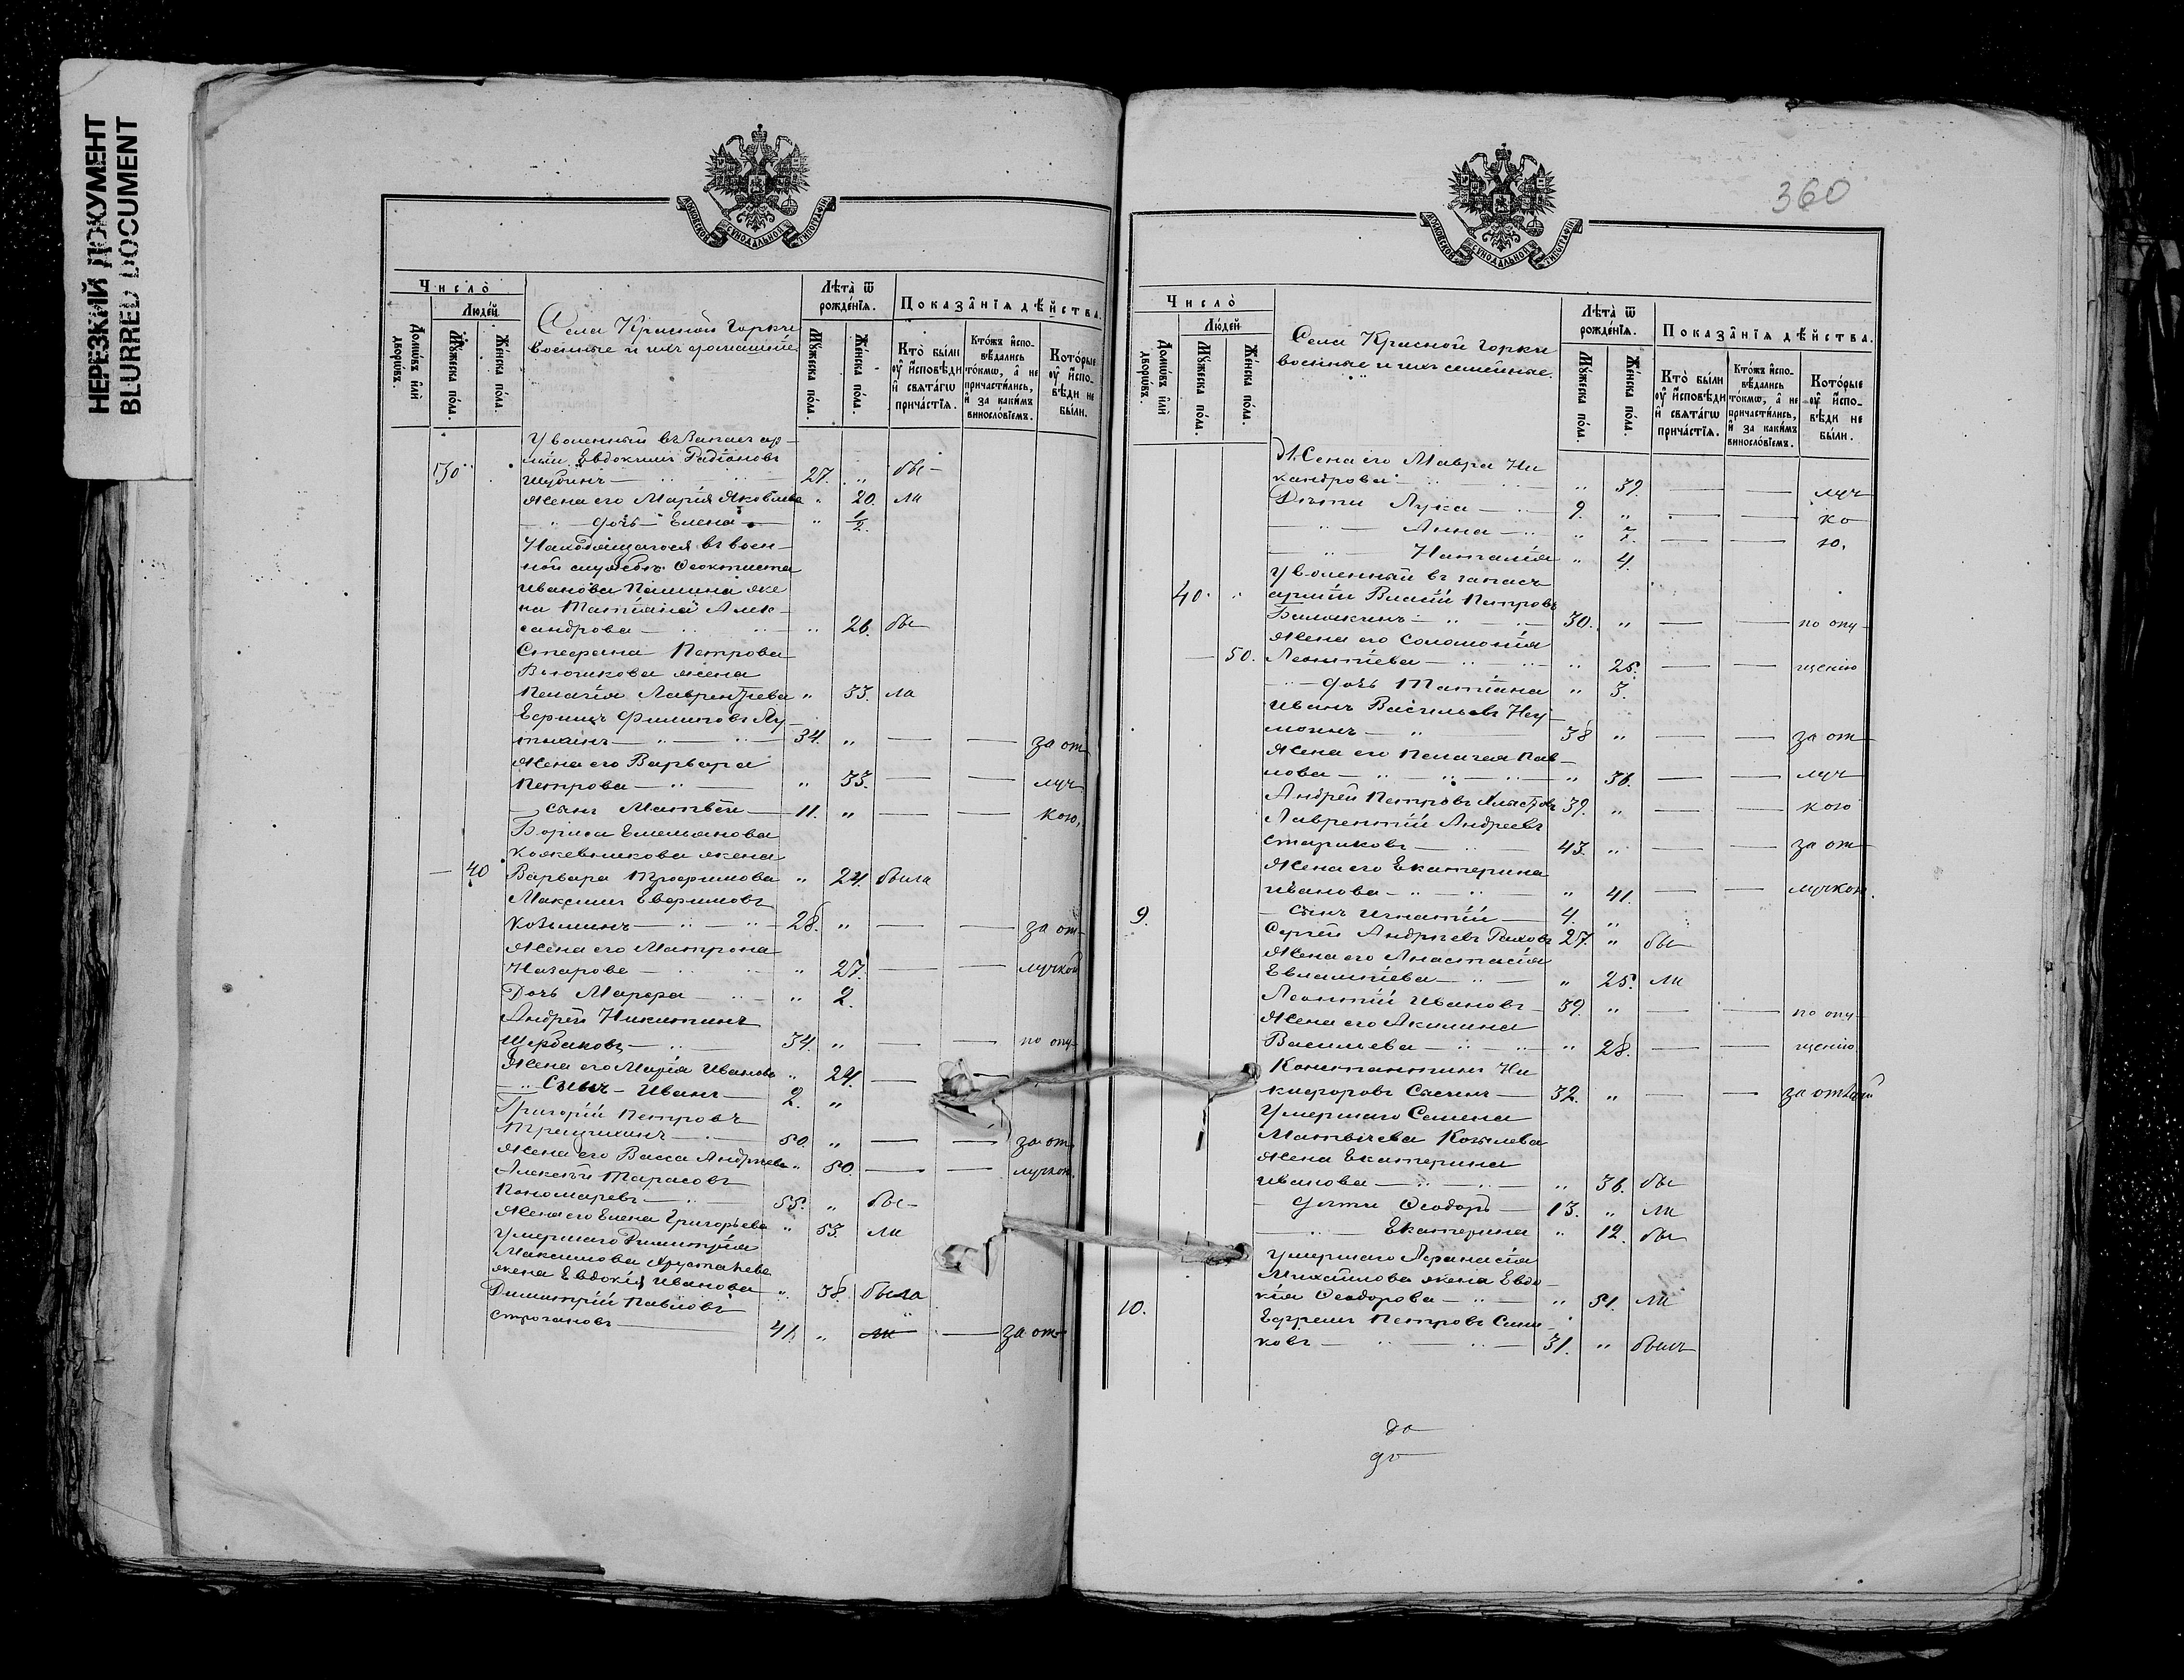 НЕРЕЗКИЙ ДОКУМЕНТ
BLURRED DOCUMENT
МОСКОВСКОЙ СѴНОДАЛЬНОЙ ТИПОГРАФІИ
Число̀
Людей
Домѡвъ или дворѡвъ.
Мꙋжеска по́ла.
Же́нска по́ла.
Села Красной Горки
военные и ихъ домашніе
Лѣта̀ ѿ рожде́нїѧ.
Мꙋжеска по́ла.
Же́нска по́ла.
Показа̑нїѧ дѣ́йства.
Кто̀ бы́ли ᲂу҆ и҆сповѣди и҆ свѧта́гѡ прича́стїѧ.
Кто́жъ и҆спо­вѣдались то́кмѡ, а҆ не причасти́лись, и҆ за каки́мъ винословіемъ.
Кото́рые ᲂу҆ и҆спо­вѣди не бы́ли.
Уволенный въ запасъ ар-
міи Евдокимъ Радіоновъ
Шубинъ 27. " бы-
Жена его Марія Яковлева " 20. ли
дочь Елена " 1/2.
Находящагося въ воен-
ной службѣ Ѳеоктиста
Иванова жe
на Татіана Алек-
сандрова " 26. бы
Стефана Петрова
жена
Пелагія Лаврентьева " 33. ла
Филиповъ
34. " за от
Жена его Варвара
Петрова " 33. луч
сынъ Матвей 11. " кою,
Бориса Емельянова
Кожевникова жена
40 Варвара Трофимова " 24. была
Максимъ Евфимовъ
Козьминъ 28. " за от-
Жена его Матрона
Назарова " 27. лучкой
Дочь Марфа " 2.
Андрей Никитинъ
Щербаковъ 34. " по опу-
Жена его Марія Иванова " 24.
Сынъ Иванъ 2. "
Григорій Петровъ
50. " за от-
Жена его Васса Андреева " 50. лучкою.
Алексѣй Тарасовъ
Пономаревъ 55. " бы-
Жена его Елена Григорьева " 53. ли
Умершаго Димитрія
Максимова
жена Евдокія Иванова " 38. была
Димитрій Павловъ
Строгановъ 41. " ли за от
360
МОСКОВСКОЙ СѴНОДАЛЬНОЙ ТИПОГРАФІИ
Число̀
Людей
Домѡвъ или дворѡвъ.
Мꙋжеска по́ла.
Же́нска по́ла.
Села Красной Горки
военные и ихъ семейные.
Лѣта̀ ѿ рожде́нїѧ.
Мꙋжеска по́ла.
Же́нска по́ла.
Показа̑нїѧ дѣ́йства.
Кто̀ бы́ли ᲂу҆ и҆сповѣди и҆ свѧта́гѡ прича́стїѧ.
Кто́жъ и҆спо­вѣдались то́кмѡ, а҆ не причасти́лись, и҆ за каки́мъ винословіемъ.
Кото́рые ᲂу҆ и҆спо­вѣди не бы́ли.
Жена его Мавра Ни
кандрова " 39. луч
Дѣти Лука 9. " ко
Анна " ю.
Наталія " 4.
Уволенный въ запасъ
40. арміи Власій Петровъ
30. " по опу-
Жена его Соломонія
50. Леонтіева " 25. щенію
дочь Татіана " 3.
Иванъ Васильевъ Нау-
мовъ " 38 " за от
Жена его Пелагея Пав-
лова " 36. луч
Андрей Петровъ 39. " кою
Лаврентій Андреевъ
Стариковъ 43. " за от
Жена его Екатерина
Иванова " 41. лучкою.
9. сынъ Игнатій 4. "
Сергѣй Андреевъ 27. " бы
Жена его Анастасія
Евлампіева " 25. ли
Леонтій Ивановъ 39. " по опу
Жена его Акилина
Васильева " 28. щенію
Константинъ Ни
кифоровъ 32. " за отлуч
Умершаго Семена
Матвѣева
жена Екатерина
Иванова " 36. бы
дѣти Ѳеодоръ 13. " ли
Екатерина " 12. бы
Умершаго Афанасія
Михайлова жена Евдо-
10. кія Ѳеодорова " 51. ли
Ефремъ Петровъ
ковъ 31. " былъ